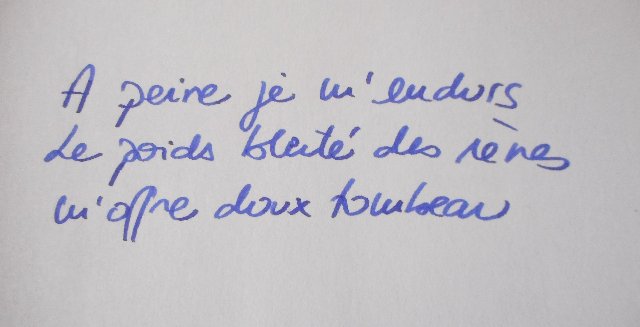 A peine je m'endors
Le poids bleuté des rêves
m'offre doux tombeau